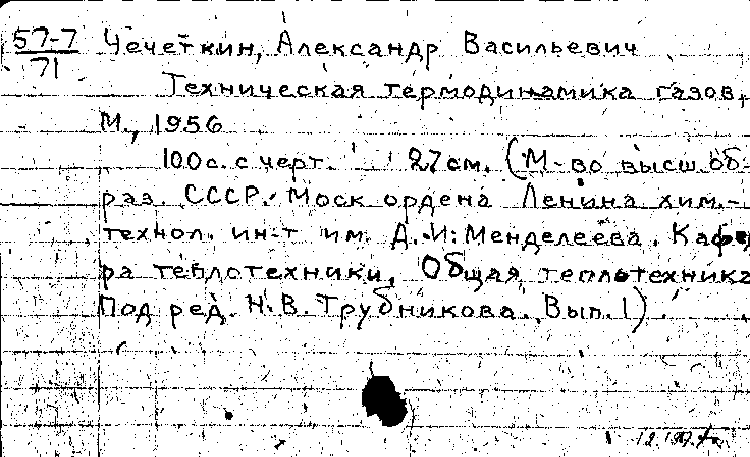 57-7
71
Чечеткин, Александр Васильевич
Техническая термодинамика газов,
М., 1956
100с. с черт. 27см. (М-во высш. об-
раз. СССР. Моск ордена Ленина хим.-
технол. ин-т им. Д. И. Менделеева. Кафед
ра теплотехники. Общая теплотехника
Под ред. Н. В. Трубникова. Вып. 1)